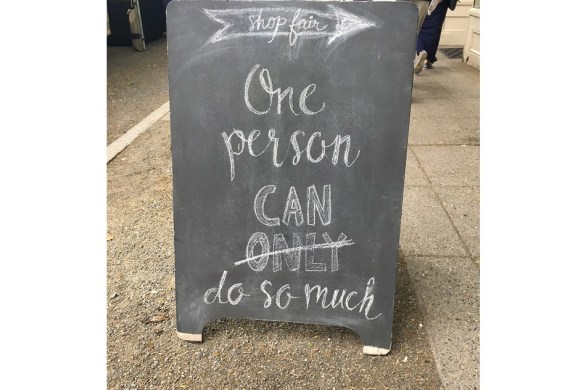 shop fair
One
person
CAN
ONLY
do so much